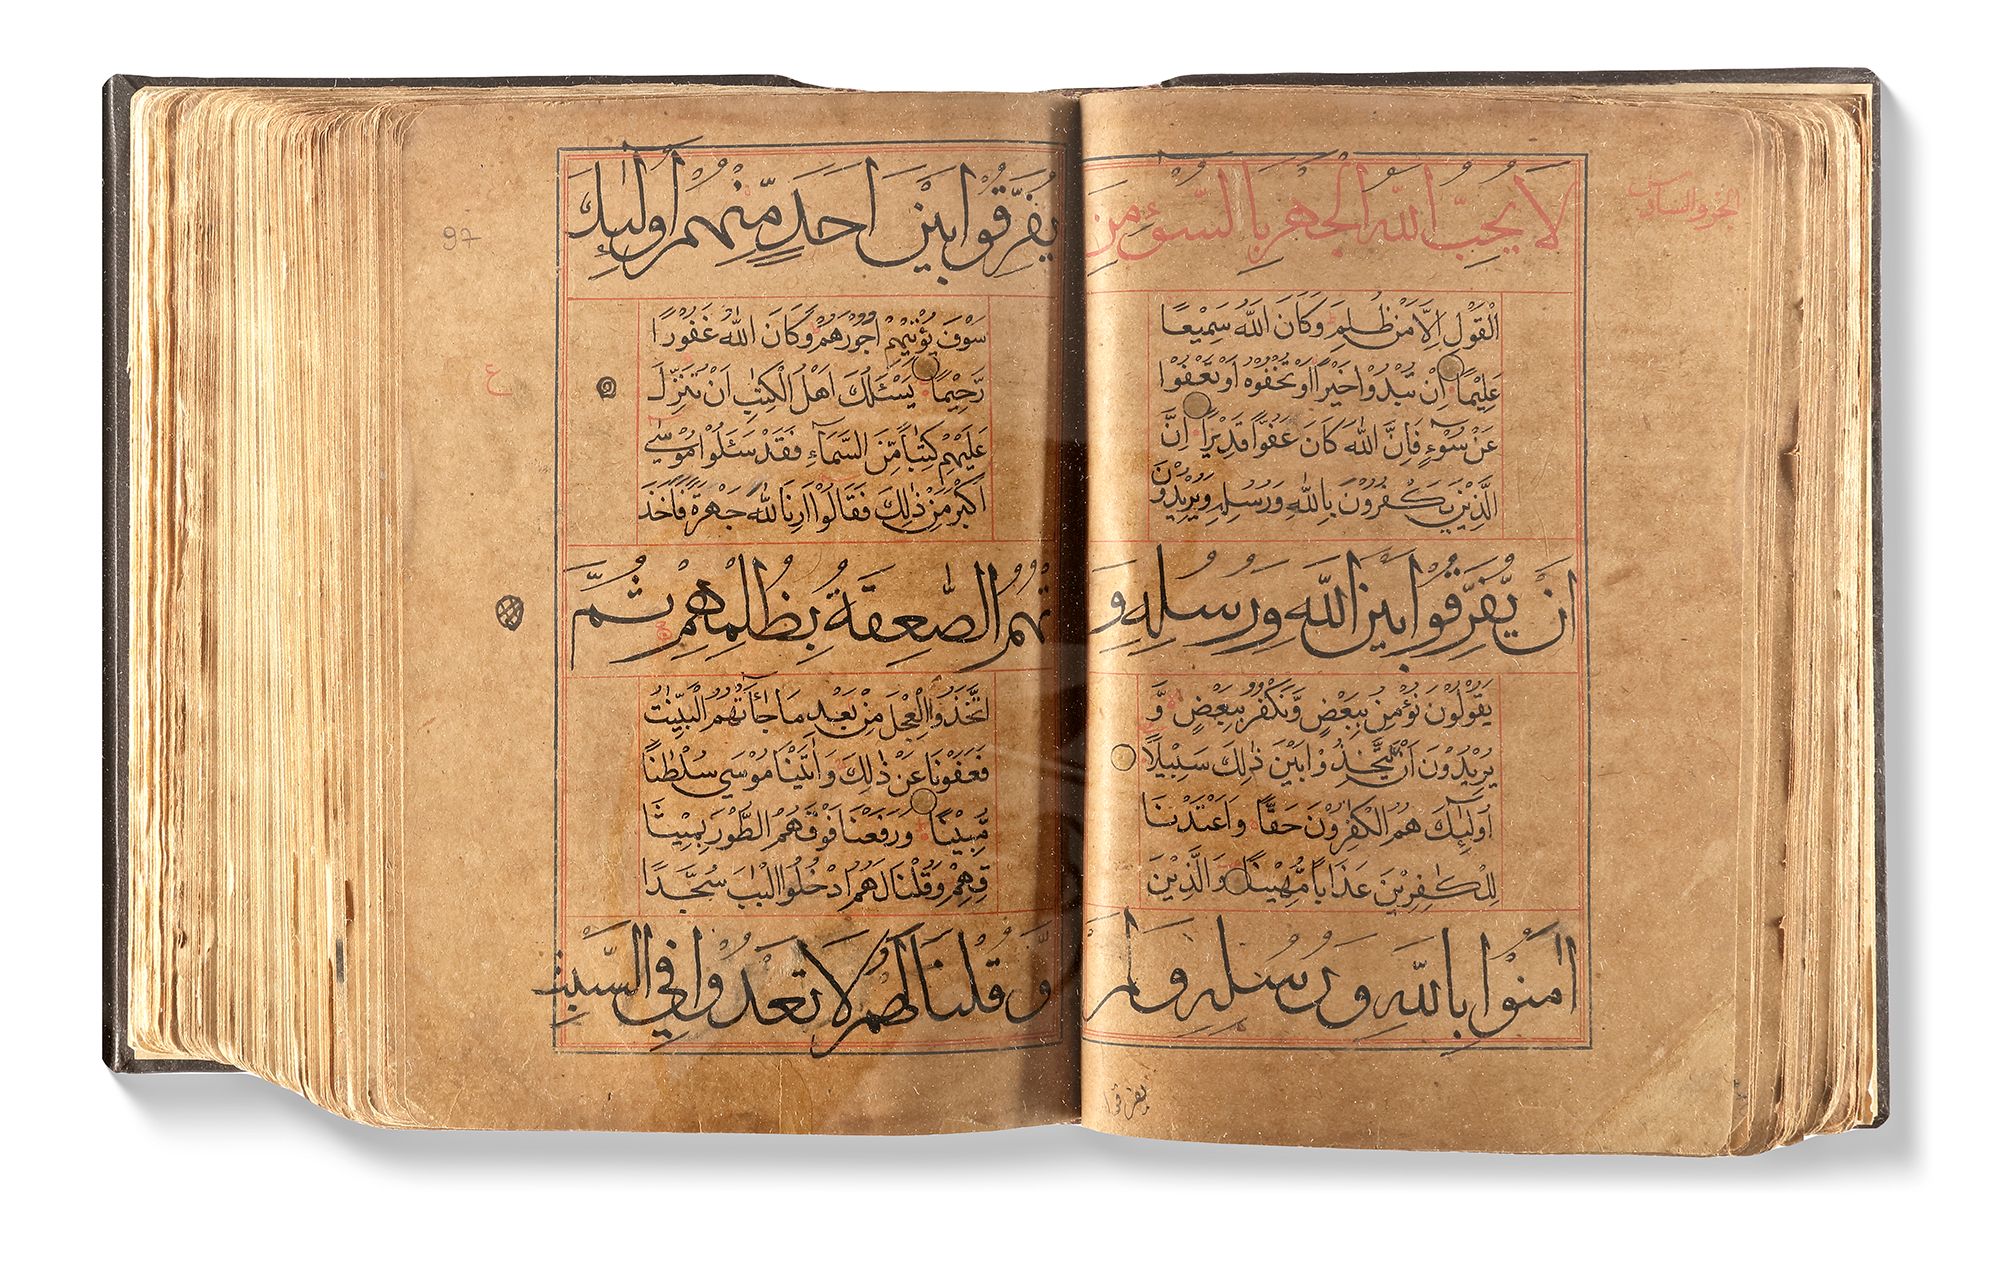 الجزو السادس
لَا يُحِبُّ اللّٰهُ الْجَهْرَ بِالسُّوْٓءِ مِنَ
الْقَوْلِ اِلَّا مَنْ ظُلِمَ وَكَانَ اللّٰهُ سَمِيْعًا
عَلِيْمًا اِنْ تُبْدُوْا خَيْرًا اَوْ تُخْفُوْهُ اَوْ تَعْفُوْا
عَنْ سُوْٓءٍ فَاِنَّ اللّٰهَ كَانَ عَفُوًّا قَدِيْرًا اِنَّ
الَّذِيْنَ يَكْفُرُوْنَ بِاللّٰهِ وَرُسُلِهٖ وَيُرِيْدُوْنَ
اَنْ يُّفَرِّقُوْا بَيْنَ اللّٰهِ وَرُسُلِهٖ وَ
يَقُوْلُوْنَ نُؤْمِنُ بِبَعْضٍ وَّنَكْفُرُ بِبَعْضٍ وَّ
يُرِيْدُوْنَ اَنْ يَّتَّخِذُوْا بَيْنَ ذٰلِكَ سَبِيْلًا
اُولٰٓئِكَ هُمُ الْكٰفِرُوْنَ حَقًّا وَاَعْتَدْنَا
لِلْكٰفِرِيْنَ عَذَابًا مُّهِيْنًا وَالَّذِيْنَ
اٰمَنُوْا بِاللّٰهِ وَرُسُلِهٖ وَلَمْ
يفرقوا
97
يُفَرِّقُوْا بَيْنَ اَحَدٍ مِّنْهُمْ اُولٰٓئِكَ
سَوْفَ يُؤْتِيْهِمْ اُجُوْرَهُمْ وَكَانَ اللّٰهُ غَفُوْرًا
رَّحِيْمًا يَسْئَلُكَ اَهْلُ الْكِتٰبِ اَنْ تُنَزِّلَ
عَلَيْهِمْ كِتٰبًا مِّنَ السَّمَآءِ فَقَدْ سَئَلُوْا مُوْسٰٓى
اَكْبَرَ مِنْ ذٰلِكَ فَقَالُوْٓا اَرِنَا اللّٰهَ جَهْرَةً فَاَخَذَ
تْهُمُ الصّٰعِقَةُ بِظُلْمِهِمْ ثُمَّ
اتَّخَذُوا الْعِجْلَ مِنْ بَعْدِ مَا جَآءَتْهُمُ الْبَيِّنٰتُ
فَعَفَوْنَا عَنْ ذٰلِكَ وَاٰتَيْنَا مُوْسٰى سُلْطٰنًا
مُّبِيْنًا وَرَفَعْنَا فَوْقَهُمُ الطُّوْرَ بِمِيْثَا
قِهِمْ وَقُلْنَا لَهُمُ ادْخُلُوا الْبَابَ سُجَّدًا
وَّقُلْنَا لَهُمْ لَا تَعْدُوْا فِي السَّبْتِ
ع